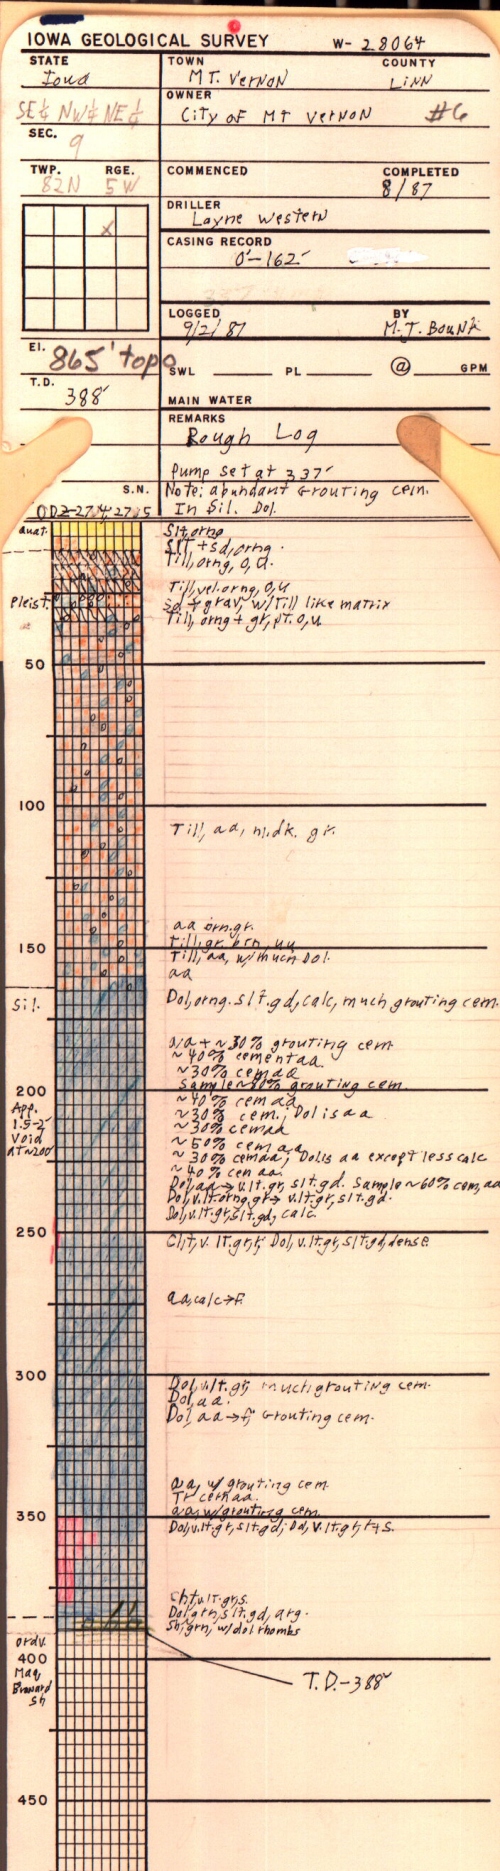 IOWA GEOLOGICAL SURVEY W- 28064
STATE TOWN COUNTY
Iowa MT. Vernon LINN
OWNER
SE¼ NW¼ NE¼ City of MT Vernon #6
SEC.
9
TWP. RGE. COMMENCED COMPLETED
82N 5W 8/87
DRILLER
Layne Western
CASING RECORD
0'-162'
LOGGED BY
9/2/87 M.J. Bounk
El. 865' topo
SWL PL @ GPM
T.D.
388' MAIN WATER
REMARKS
Rough Log
Pump set at 337'
S.N. Note: abundant Grouting cem.
In Sil. Dol.
Quat. Slt, orng
Slt + sd, orng.
Till, orng, O, U.
Till, yel. orng, O, U
Pleist. sd + grav, w/Till like matrix
Till, orng + gr, pt. O, U.
50
100
Till, aa, m. dk. gr.
aa brn. gr.
150 Till, gr. brn, UU
Till, aa, w/much Dol.
aa
Sil. Dol, orng. slt. gd, calc, much grouting cem.
a/a + ~30% grouting cem.
~40% cement aa.
~30% cem aa
200 Sample ~80% grouting cem.
~40% cem aa
App. ~30% cem., Dol is aa
1.5-2' ~30% cem aa
Void ~50% cem aa
at ~200' ~30% cem aa, Dol is aa except less calc
~40% cem aa.
Dol, aa → v. lt. gr, slt. gd. Sample ~60% cem, aa
Dol, v. lt. orng. gr → v. lt. gr, slt. gd.
Dol, v. lt. gr, slt. gd, calc.
250
Cht, v. lt. gr, f; Dol, v. lt. gr, slt. gd, dense.
aa, calc → f.
300 Dol, v. lt. gr, much grouting cem.
Dol, aa.
Dol, aa → f, Grouting cem.
aa, w/ grouting cem.
Tr cem aa.
aa, w/grouting cem.
350 Dol, v. lt. gr, slt. gd; Dol, v. lt. gr, f + s.
Cht, v. lt. gr, s.
Dol, grn, slt. gd, arg.
Sh, grn, w/dol rhombs
Ordv.
400
Maq.
Brainard
Sh
T.D.-388'
450